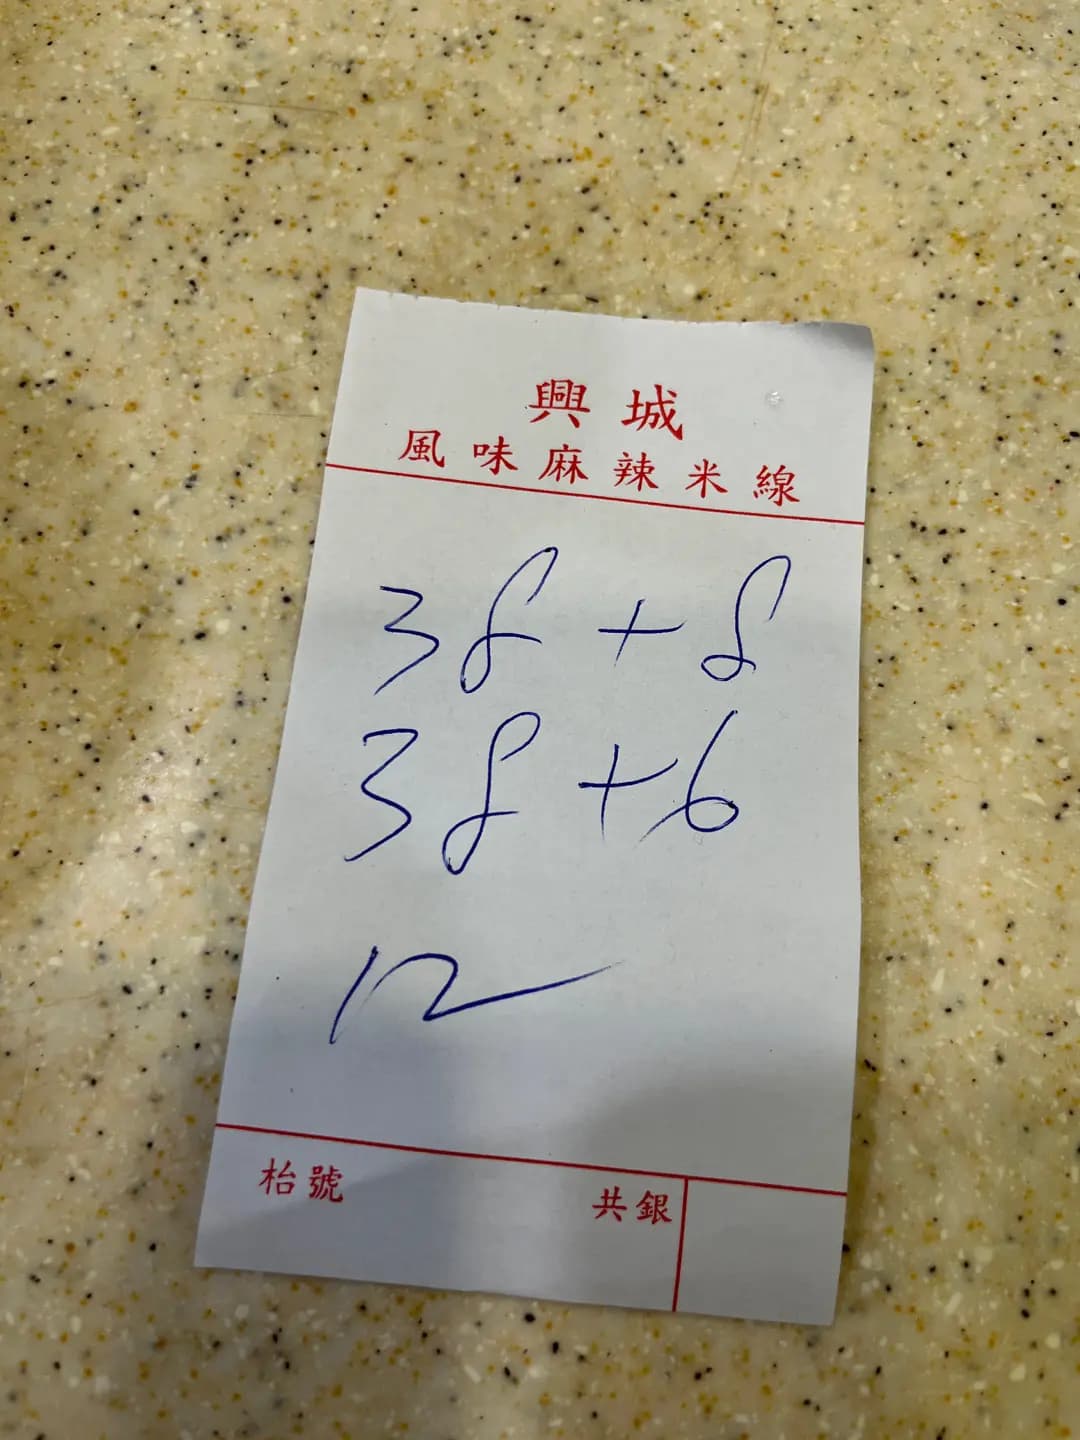 興城
風味麻辣米線
38+8
38+6
12
枱號
共銀